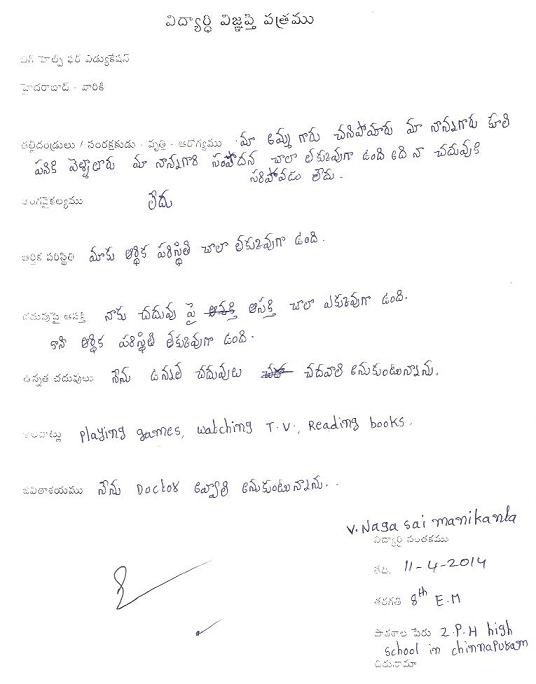 విద్యార్ధి విజ్ఞప్తి పత్రము
బిగ్ హెల్ప్ ఫర్ ఎడ్యుకేషన్
హైదరాబాద్ - వారికి
తల్లిదండ్రులు / సంరక్షకుడు - వృత్తి - ఆరోగ్యము - మా అమ్మ గారు చనిపోయారు మా నాన్నగారు కూలి
పనికి వెళ్తారు మా నాన్నగారి సంపాదన చాలా తక్కువగా ఉంది అది నా చదువుకి
సరిపోవడం లేదు.
అంగవైకల్యము లేదు
ఆర్థిక పరిస్థితి మాకు ఆర్థిక పరిస్థితి చాలా తక్కువగా ఉంది.
చదువుపై ఆసక్తి నాకు చదువు పై ఆసక్తి చాలా ఎక్కువగా ఉంది.
కాని ఆర్థిక పరిస్థితి తక్కువగా ఉంది.
ఉన్నత చదువులు నేను ఉన్నత చదువులు చదవాలి అనుకుంటున్నాను.
అలవాట్లు Playing games, watching T.V., Reading books.
జీవితాశయము నేను Doctor అవ్వాలి అనుకుంటున్నాను..
V. Naga sai manikanta
విద్యార్థి సంతకము
తేది. 11-4-2014
తరగతి 8th E.M
పాఠశాల పేరు Z.P.H high
school in chinnapuram
చిరునామా